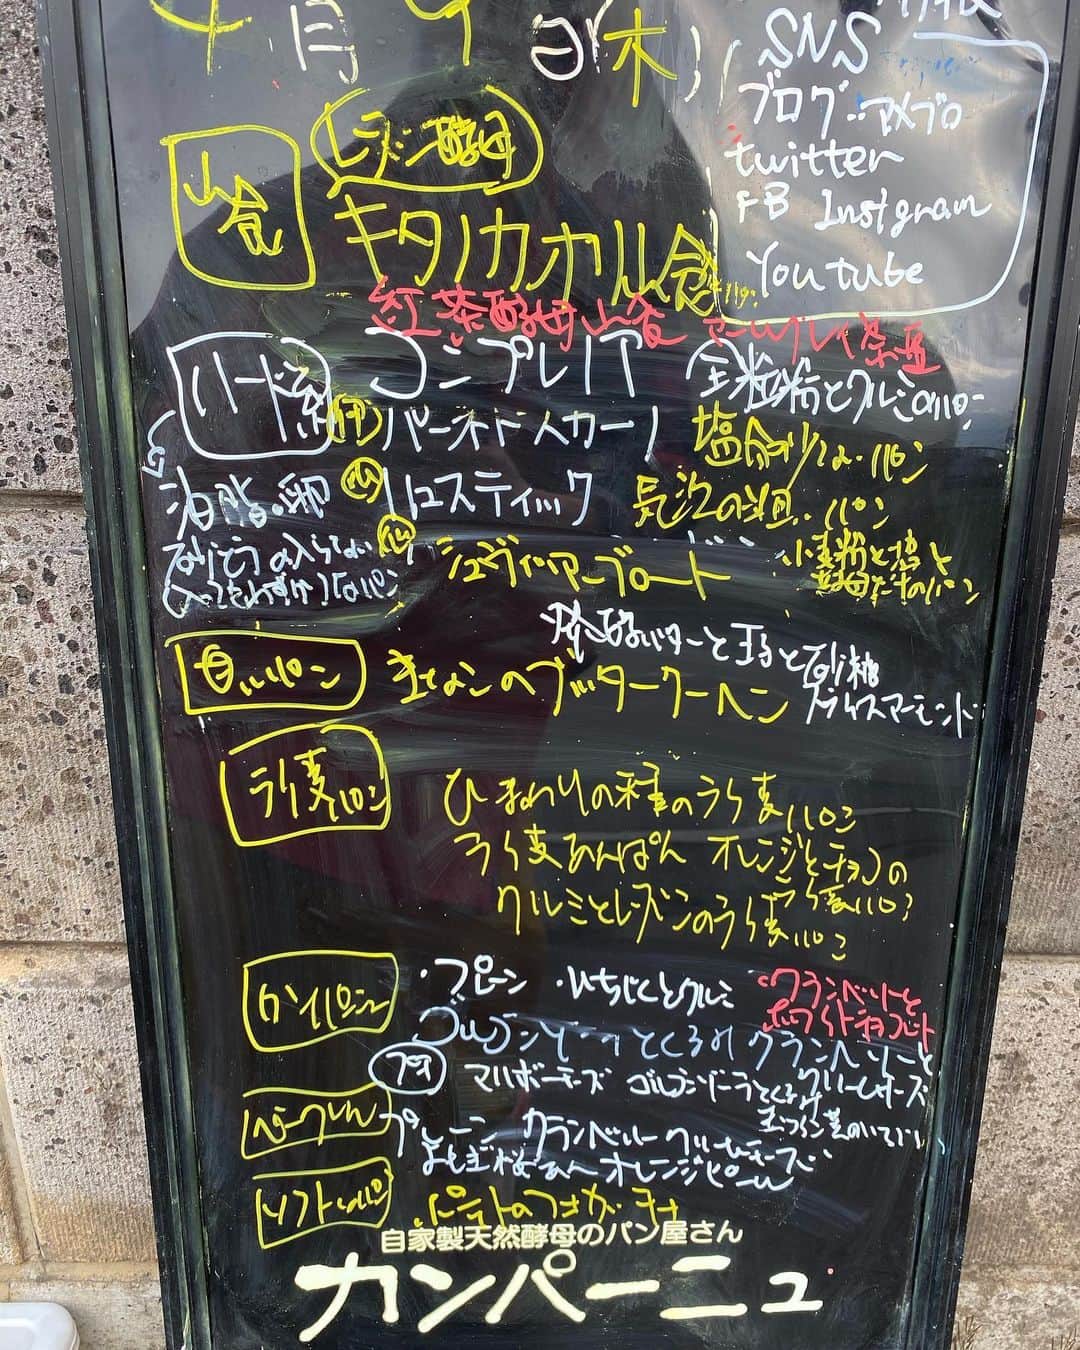 4月9日(木)
SNS
ブログ:アメブロ
twitter
FB Instgram
Youtube
山食
レーズン酵母
キタノカオル山食
紅茶酵母山食 アールグレイ茶葉
ハード系
コンプレ 全粒粉とクルミのパン
パーネトスカーノ 塩分少ないパン
リュスティック 気泡の粗いパン
油脂.卵
なりどうの入らない
シュヴァイツァーブロート 小麦粉と塩と
発酵バターと玉子と砂糖
白いパン
きなこのブッタークーヘン
スライスアーモンド
ライ麦パン
ひまわりの種のライ麦パン
ライ麦あんぱん オレンジとチョコの
ライ麦パン
クルミとレーズンのライ麦パン
・プレーン ・いちじくとクルミ ・クランベリーと
ホワイトチョコレート
ゴルゴンゾーラとくるみ クランベリーと
クリームチーズ
プチ マルボーチーズ ゴルゴンゾーラとくるみ
ベーグル
プレーン クランベリークリームチーズ
よもぎ桜あん オレンジピール
ソフトなパン
ポテトのフォカッチャ
自家製天然酵母のパン屋さん
カンパーニュ